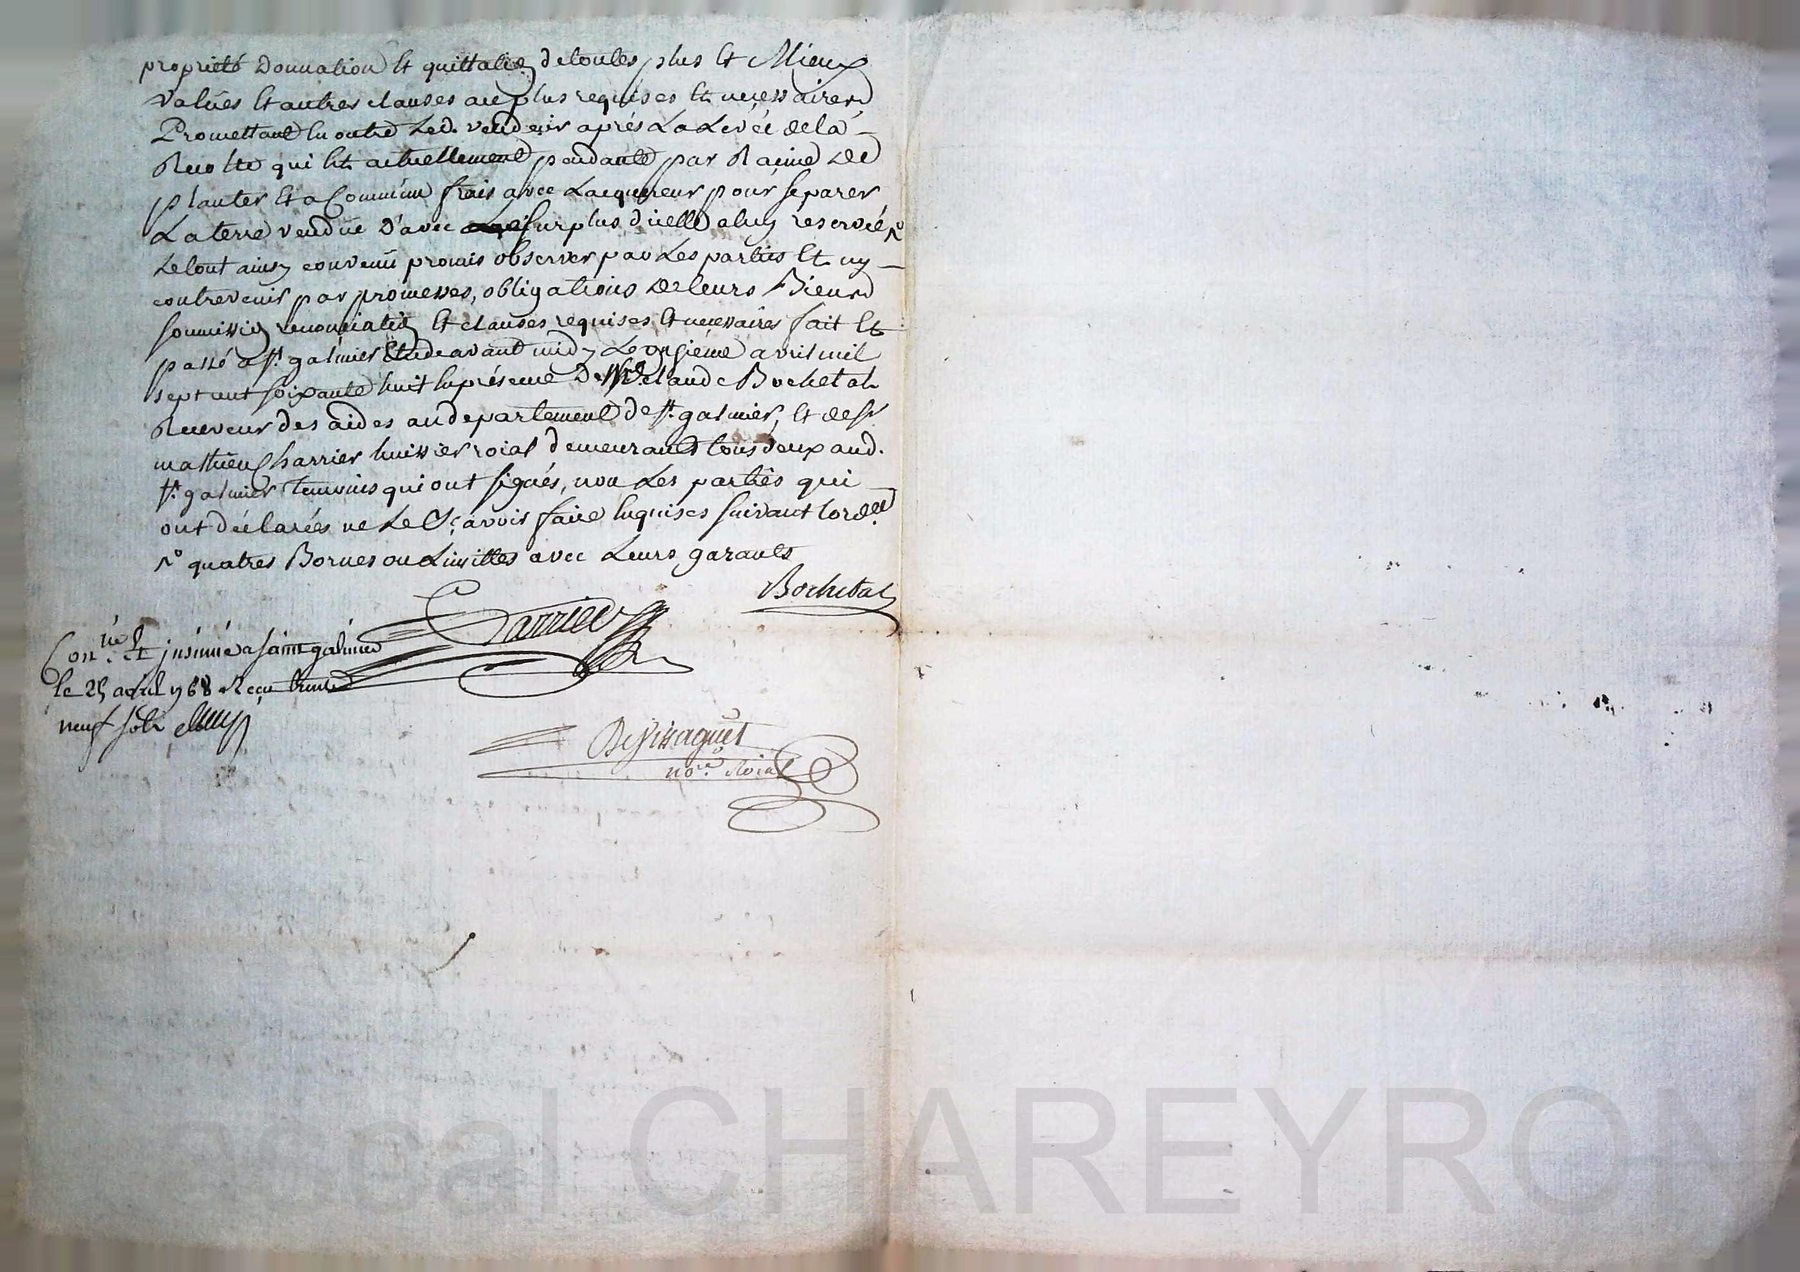 proprieté Donnation et quittation de toutes plus et Mieux
values et autres clauses au plus requises et necessaires
Promettant en outre Led. vendeur après La Levée de la
Recolte qui est actuellement pendante par Racine de
planter et a Commun frais avec Lacquereur pour separer
La terre vendue D'avec surplus d'icelle a luy réservée
Le tout ainsy convenu promis observer par Les parties et ny
contrevenir par promesses, obligations de leurs Biens
soumission renonciation et clauses requises et necessaires fait et
passé a st. galmier Etude avant midy Le onsiéme avril mil
sept cent soixante huit en présence De Me. claude Bochetal
Receveur des aides au departement de st. galmier, et de sr.
mathieu Charrier huissier roial demeurants tous deux aud.
st. galmier temoins qui ont signés, non Les parties qui
ont déclarées ne Le Sçavoir faire enquises suivant lordce.
quatres Bornes ou Limittes avec Leurs garants
Bochetal
Con.lé et insinué a saint galmier
le 25 avril 1768 Reçu trente
neuf sols
nore. Roial
ascal CHAREYRON